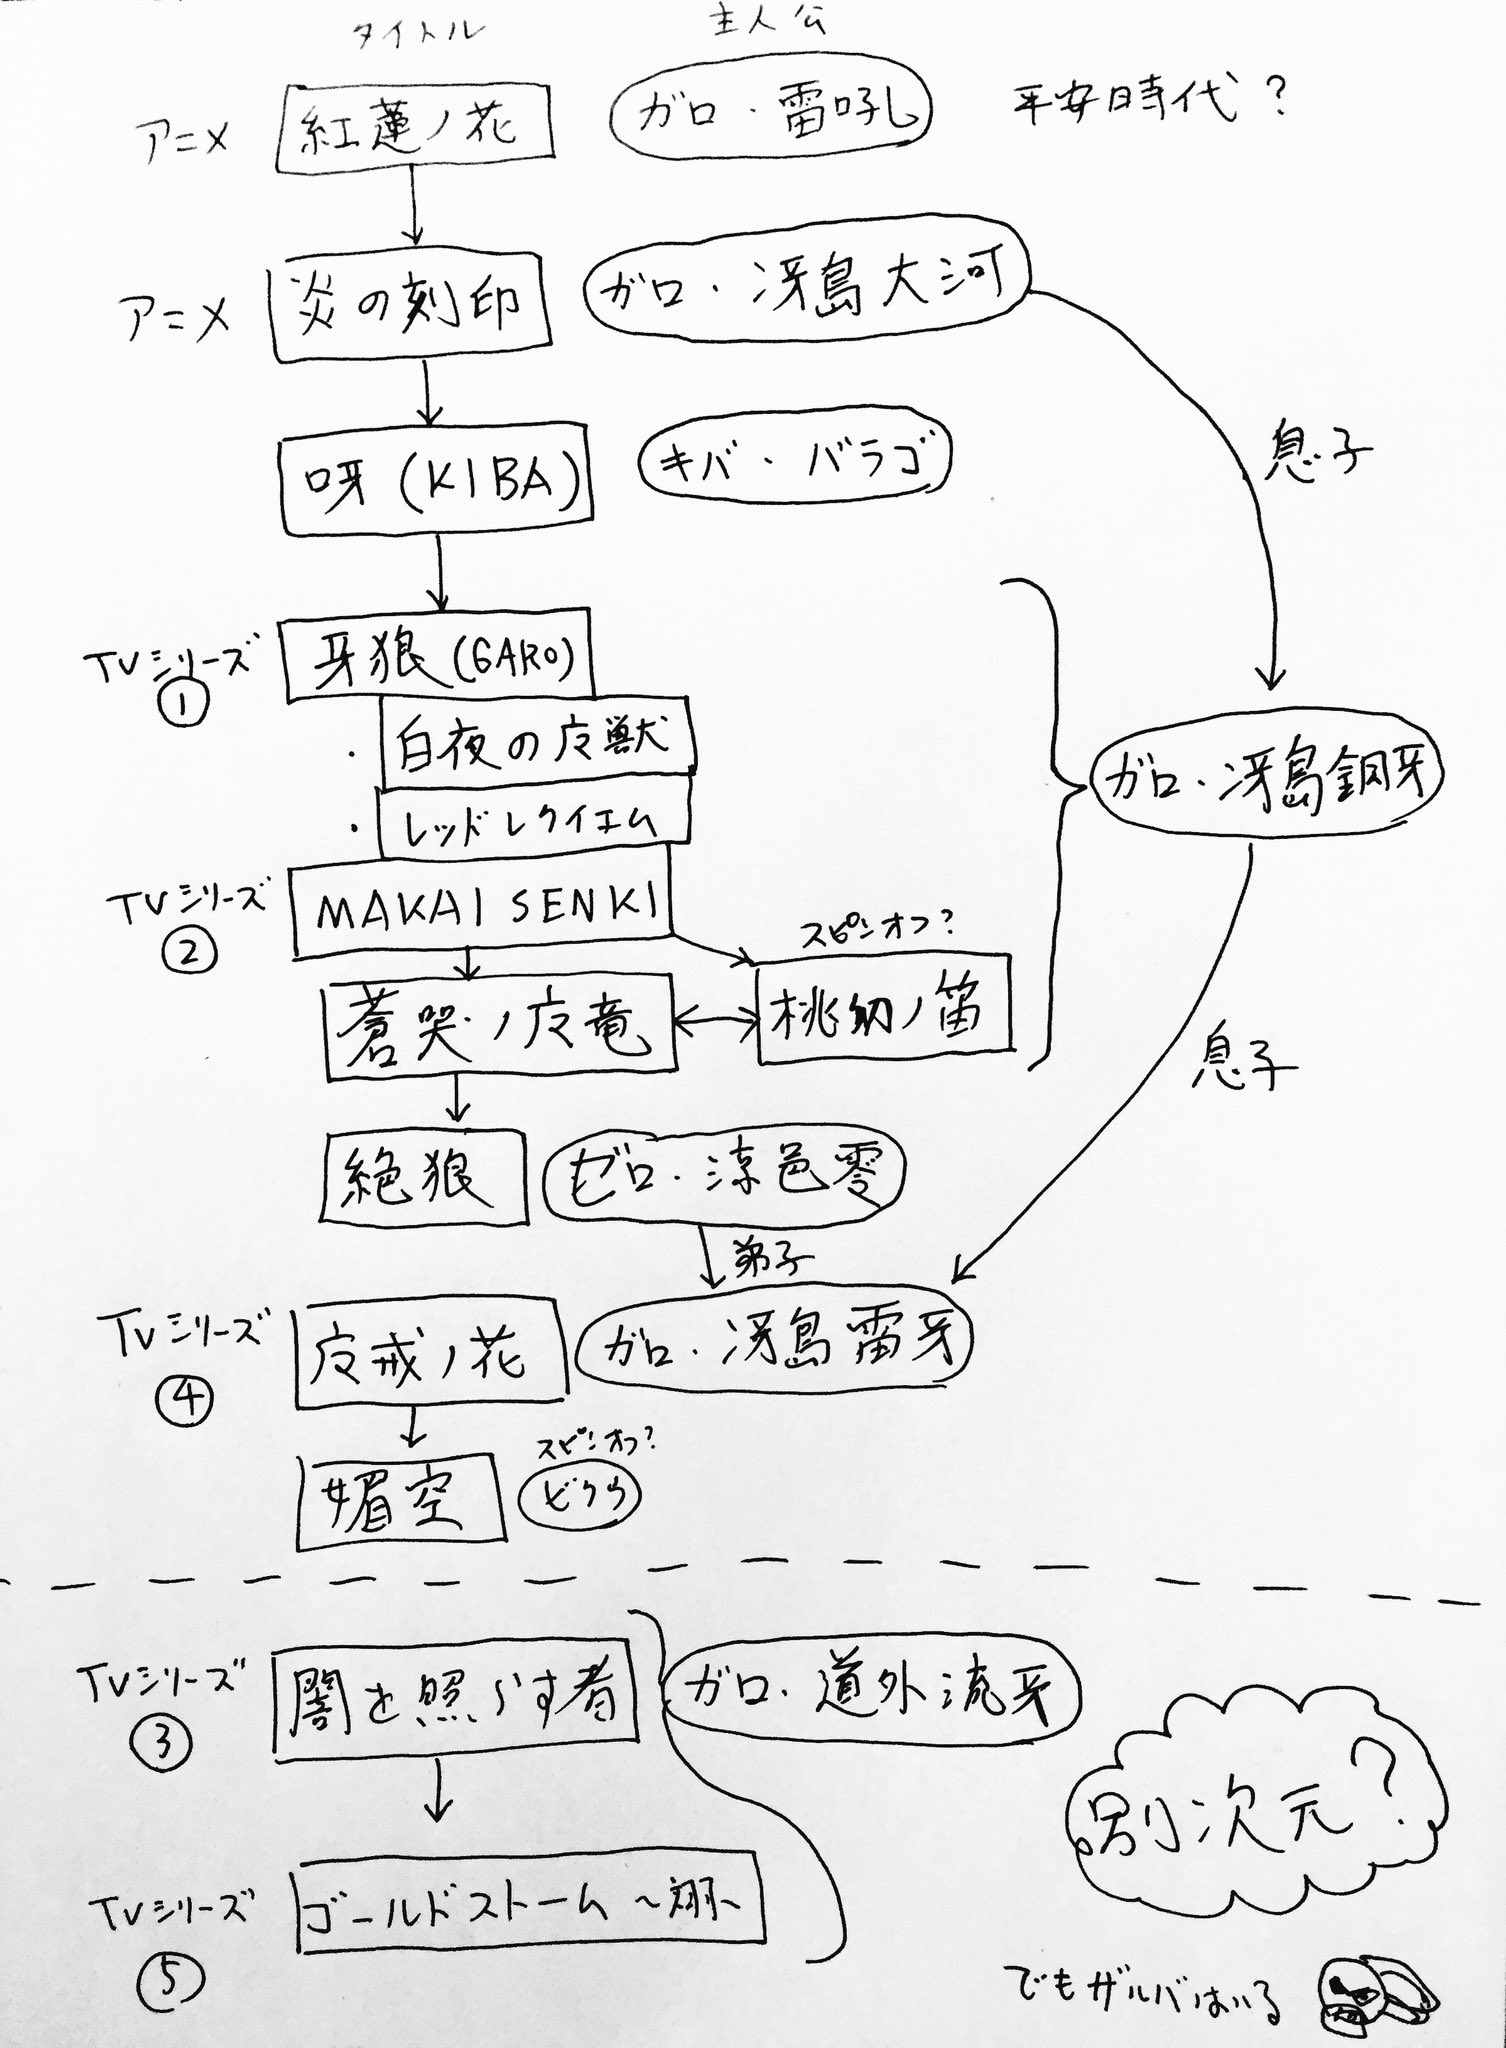 タイトル
主人公
アニメ
紅蓮ノ花
ガロ・雷吼
平安時代?
アニメ
炎の刻印
ガロ・冴島大河
息子
呀(KIBA)
キバ・バラゴ
TVシリーズ
①
牙狼(GARO)
・白夜の広獣
・レッドレクイエム
ガロ・冴島鋼牙
TVシリーズ
②
MAKAI SENKI
スピンオフ?
蒼哭ノ広竜
桃幻ノ笛
息子
絶狼
ゼロ・涼邑零
弟子
TVシリーズ
④
広戒ノ花
ガロ・冴島雷牙
媚空
スピンオフ?
ビクウ
TVシリーズ
③
闇を照らす者
ガロ・道外流牙
別次元?
TVシリーズ
⑤
ゴールドストーム~翔~
でもザルバはいる